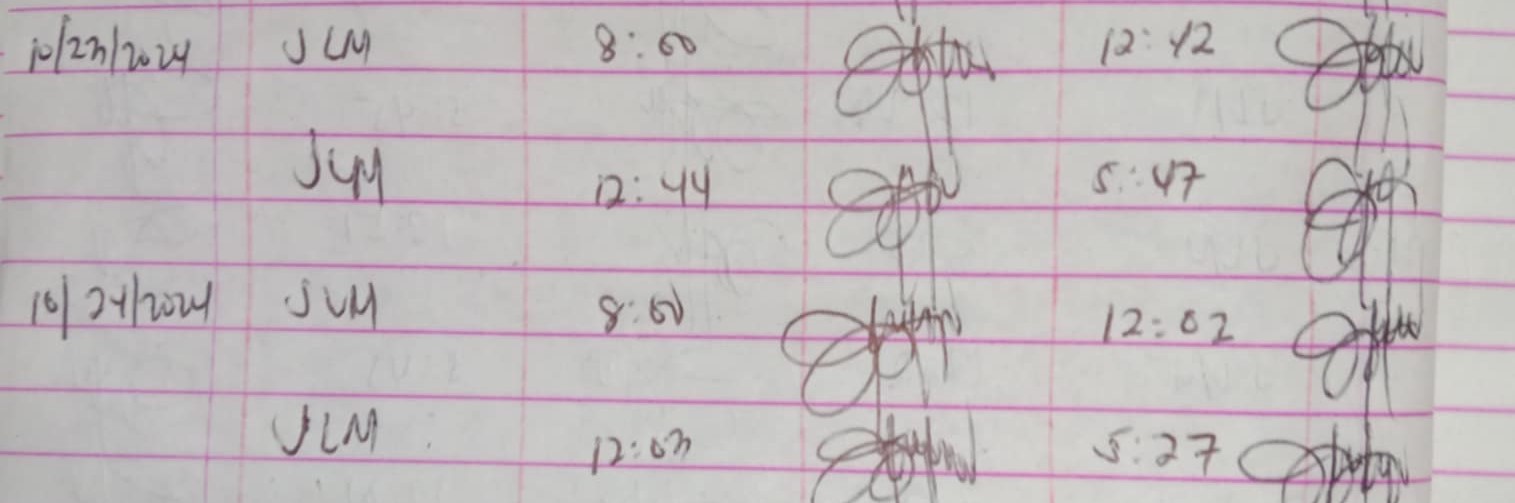 10/23/2024 JLM 8:00 12:42
JLM 12:44 5:47
10/24/2024 JLM 8:00 12:02
JLM 12:03 5:27